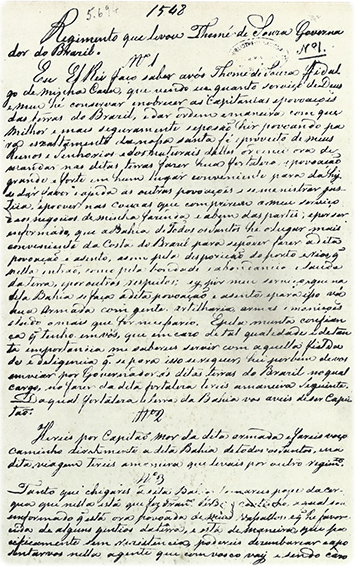 5.694
1548
Regimento que levou Thomé de Souza Governa
dor do Brazil.
Nº 1.
Nº 1
Eu El Rei faço saber a vós Thomé de Souza Fidal
go de minha Casa, que vendo eu quanto serviço de Deus
e meu he conservar e nobrecer as Capitanias e povoações
das terras do Brazil, e dar ordem e maneira com que
milhor e mais seguramente se possão hir povoando pa
ra exalçamento da nossa santa fé e proveito de meus
Reinos e Senhorios e dos naturaes delles ordenei ora de
mandar nas ditas terras fazer hua fortaleza e povoação
grande e forte em hum lugar conveniente para dahi
se dar favor e ajuda as outras povoações e se menistrar jus
tiça, e prover nas cousas que comprirem a meu serviço
e aos negocios de minha fazenda e a bem das partes; e por ser
enformado, que a Bahia de Todos os santos he o lugar mais
conveniente da Costa do Brazil para se poder fazer a dita
povoação e asento, assim pela disposição do porto e rios, q
nella entrão, como pela bondade e abastança e saude
da terra, e por outros respeitos; ey por meu serviço, que na
dita Bahia se faça a dita povoação e asento e para isso vá
hua Armada com gente artelharia armes e monições
e tudo o mais que for necessario. E pela muita confian
ça q tenho em vós, que em caso de tal qualidade e de tan
ta importancia me sabereis servir com aquella fieldade
e diligencia q se para isso se requer, hei por bem de vos
enviar por Governador ás ditas terras do Brazil no qual
cargo, e no fazer da dita fortaleza tereis a maneira seguinte.
Da qual fortaleza e terra da Bahia vos aveis de ser Capi
tão.
Nº 2
Hireis por Capitão Mor da dita armada e fareis vosso
caminho direitamente a dita Bahia de Todos os santos, e na
dita viagem tereis a maneira que levais por outro regimto.
Nº 3
Tanto que chegares á dita Bahia tomareis posse da cer
qua que nella está que fez Francisco Pereira Coutinho
enformado q está ora povoada de meus vassallos e q he favore
cida de alguns gentios da terra, e está de maneira que pa
cificamente sem rezistencia podereis desembarcar e apo
sentarvos nella a gente que com vosco vay; e sendo caso